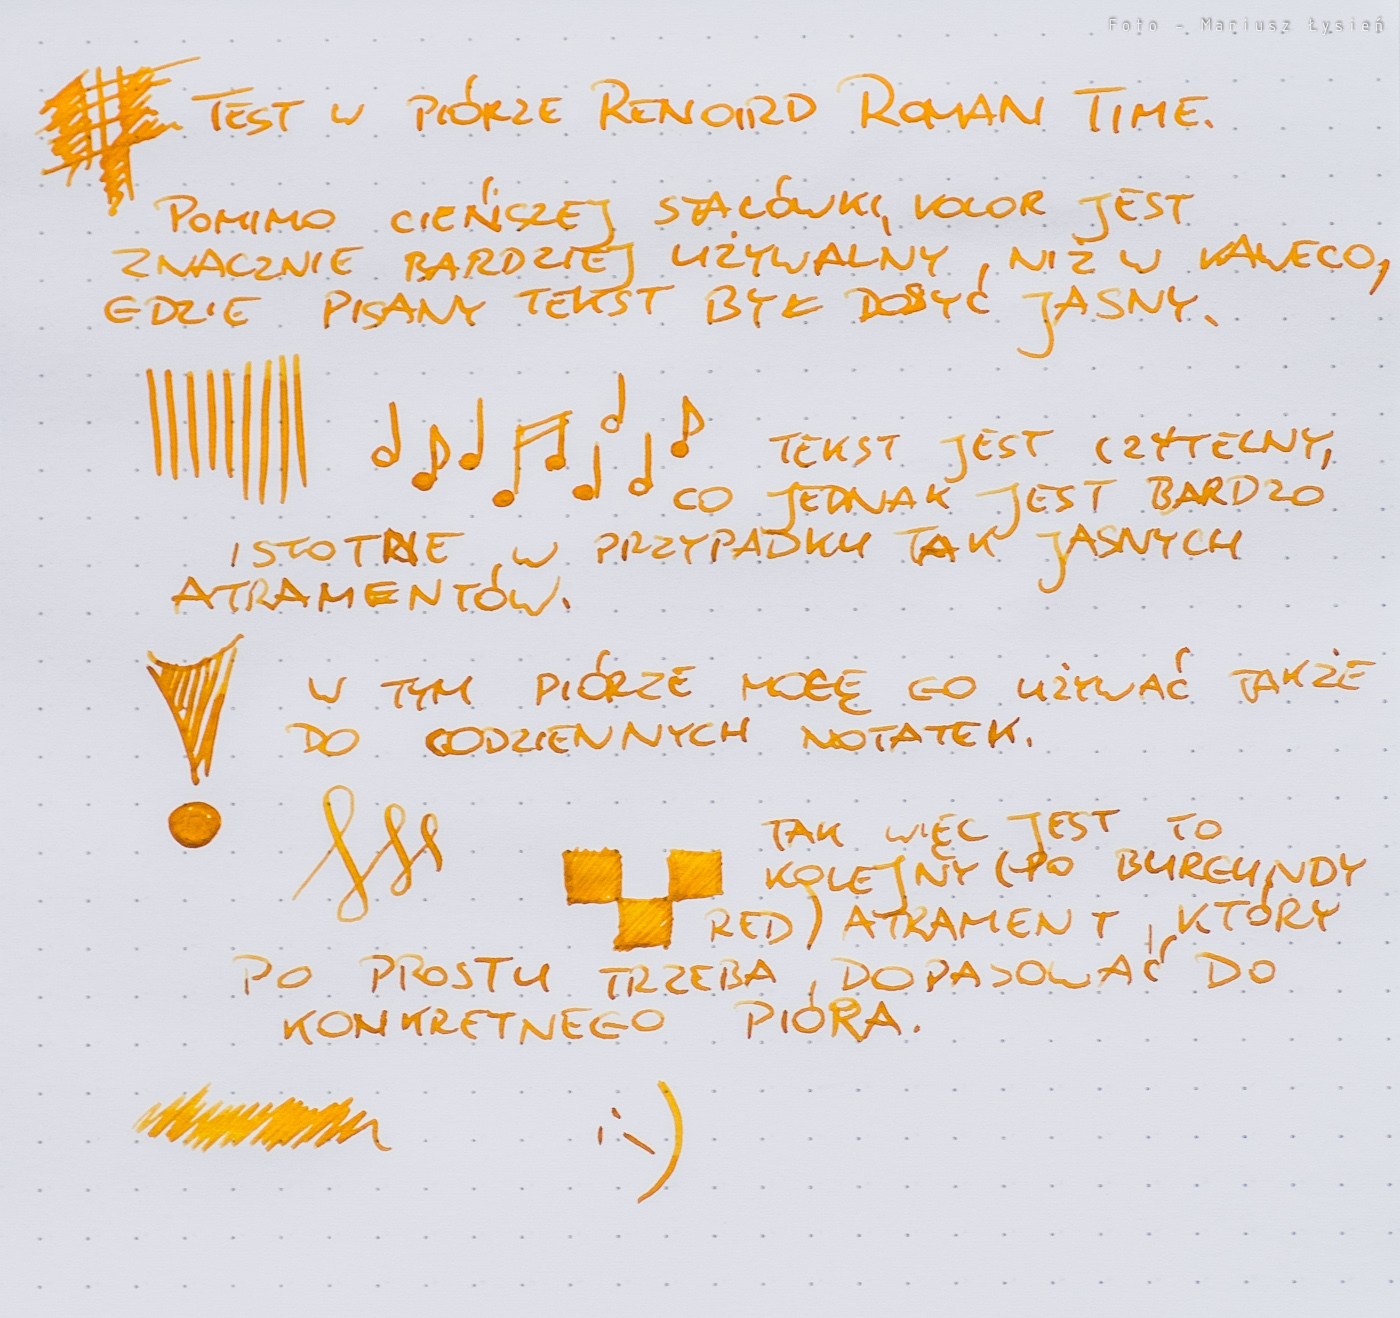 Foto - Mariusz Łysień
TEST W PIÓRZE RENOIRD ROMAN TIME.
POMIMO CIEŃSZEJ STALÓWKI, KOLOR JEST
ZNACZNIE BARDZIEJ UŻYWALNY, NIŻ W KAWECO,
GDZIE PISANY TEKST BYŁ DOSYĆ JASNY.
TEKST JEST CZYTELNY,
CO JEDNAK JEST BARDZO
ISTOTNE, W PRZYPADKU TAK JASNYCH
ATRAMENTÓW.
W TYM PIÓRZE MOGĘ GO UŻYWAĆ TAKŻE
DO CODZIENNYCH NOTATEK.
TAK WIĘC JEST TO
KOLEJNY (PO BURGUNDY
RED) ATRAMENT, KTÓRY
PO PROSTU TRZEBA DOPASOWAĆ DO
KONKRETNEGO PIÓRA.
:-)